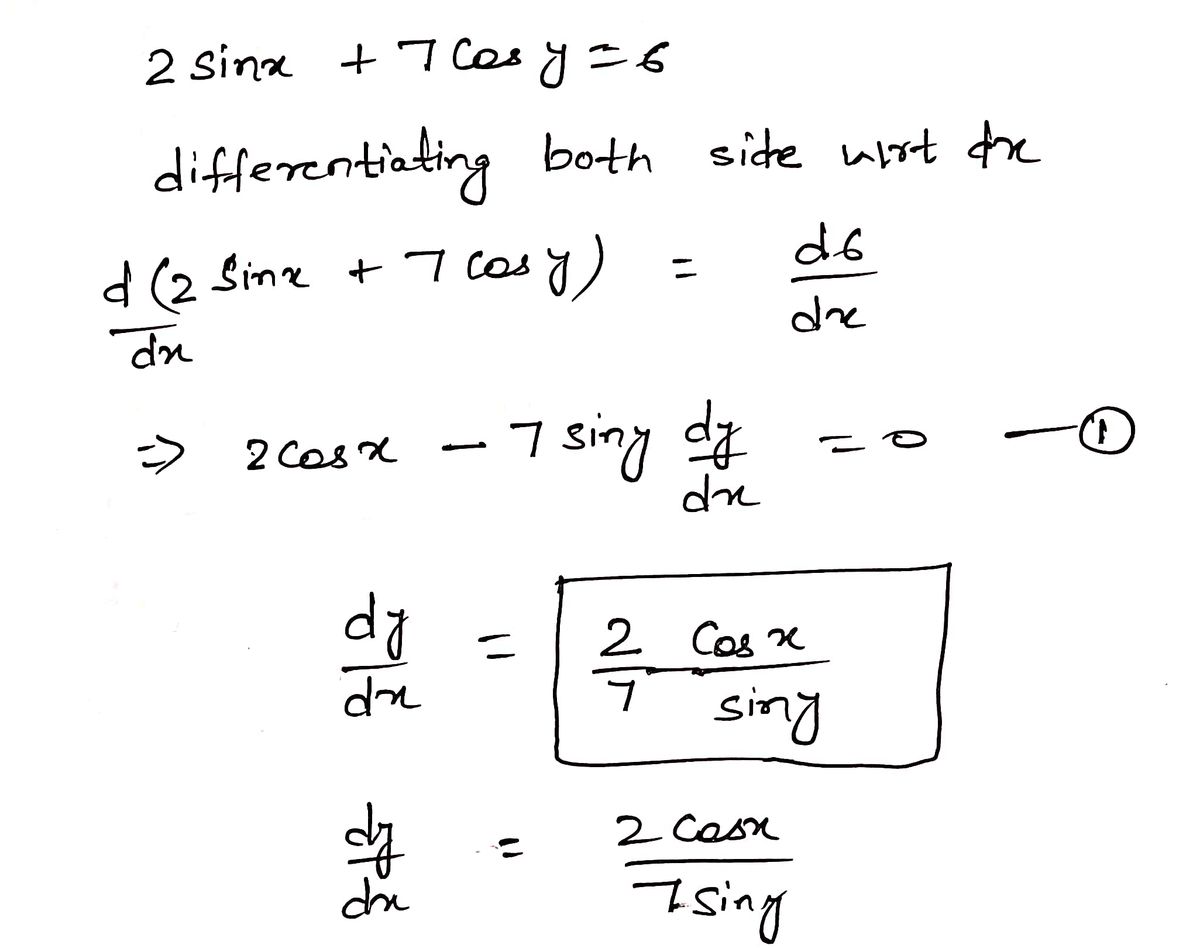 2 sinx + 7 Cos y = 6
differentiating both side wrt dx
d (2 Sinx + 7 cos y) / dx = d6 / dx
⇒ 2 Cos x - 7 siny dy/dx = 0 — ①
dy/dx = 2/7 Cos x / siny
dy/dx = 2 Cosx / 7 Siny